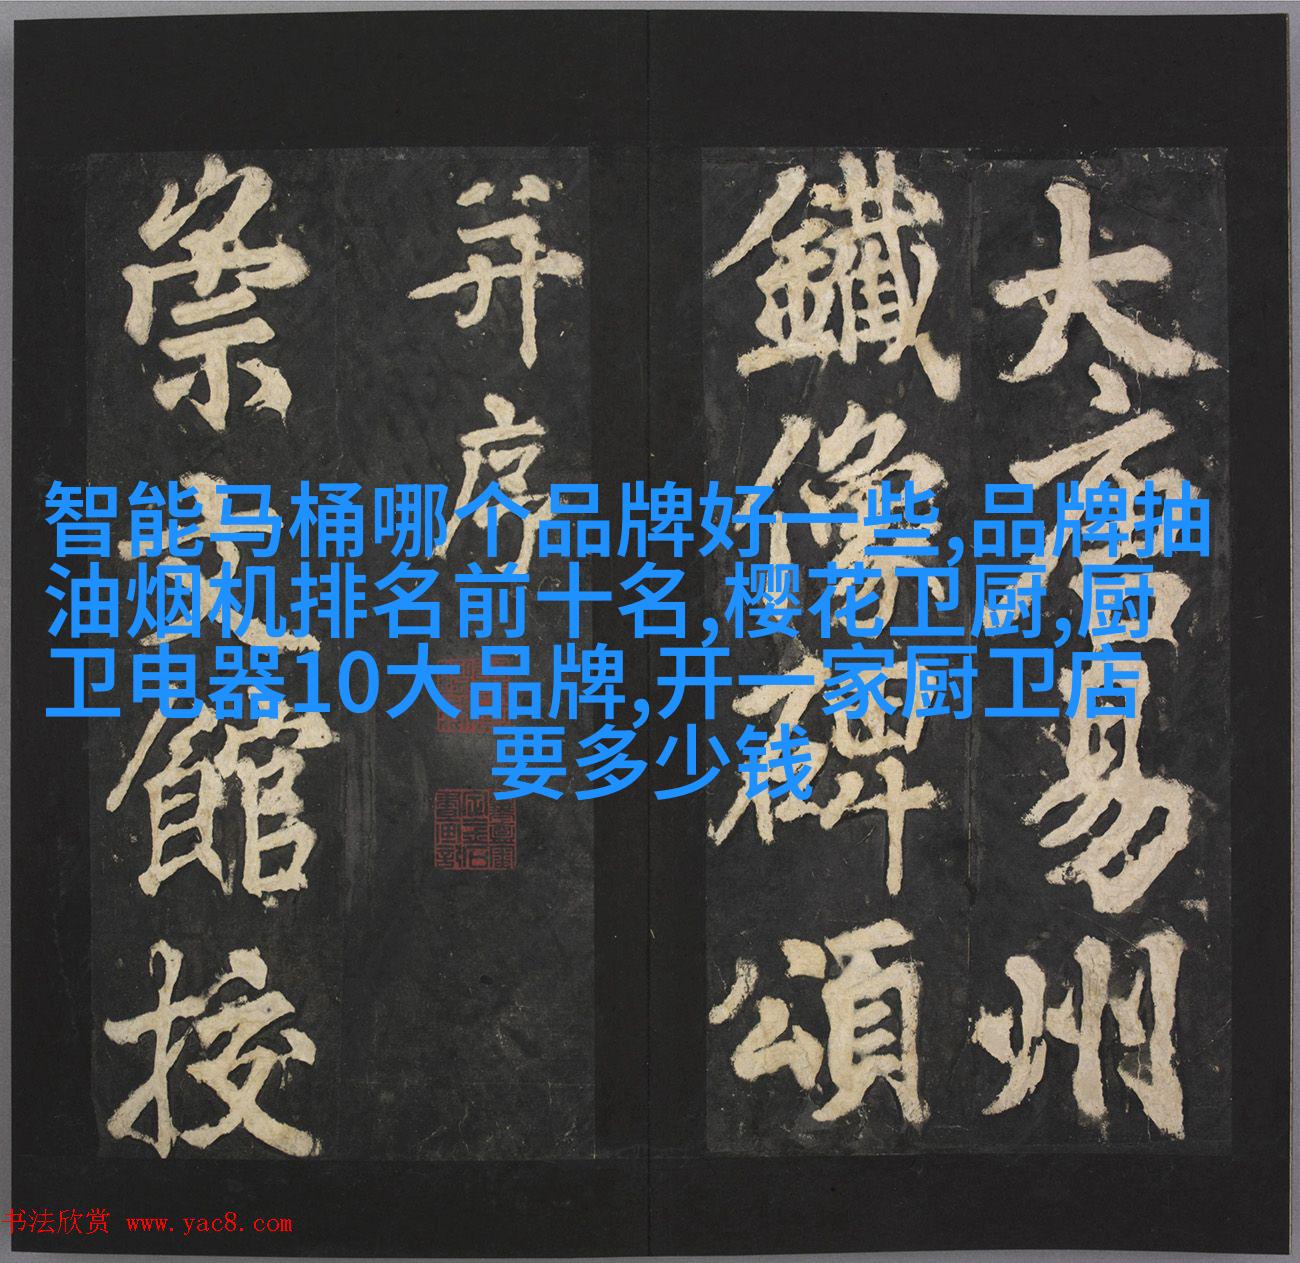 大唐易州
鐵像碑頌
并序
崇文館校
智能马桶哪个品牌好一些,品牌抽
油烟机排名前十名,樱花卫厨,厨
卫电器10大品牌,开一家厨卫店
要多少钱
书法欣赏 www.yac8.com